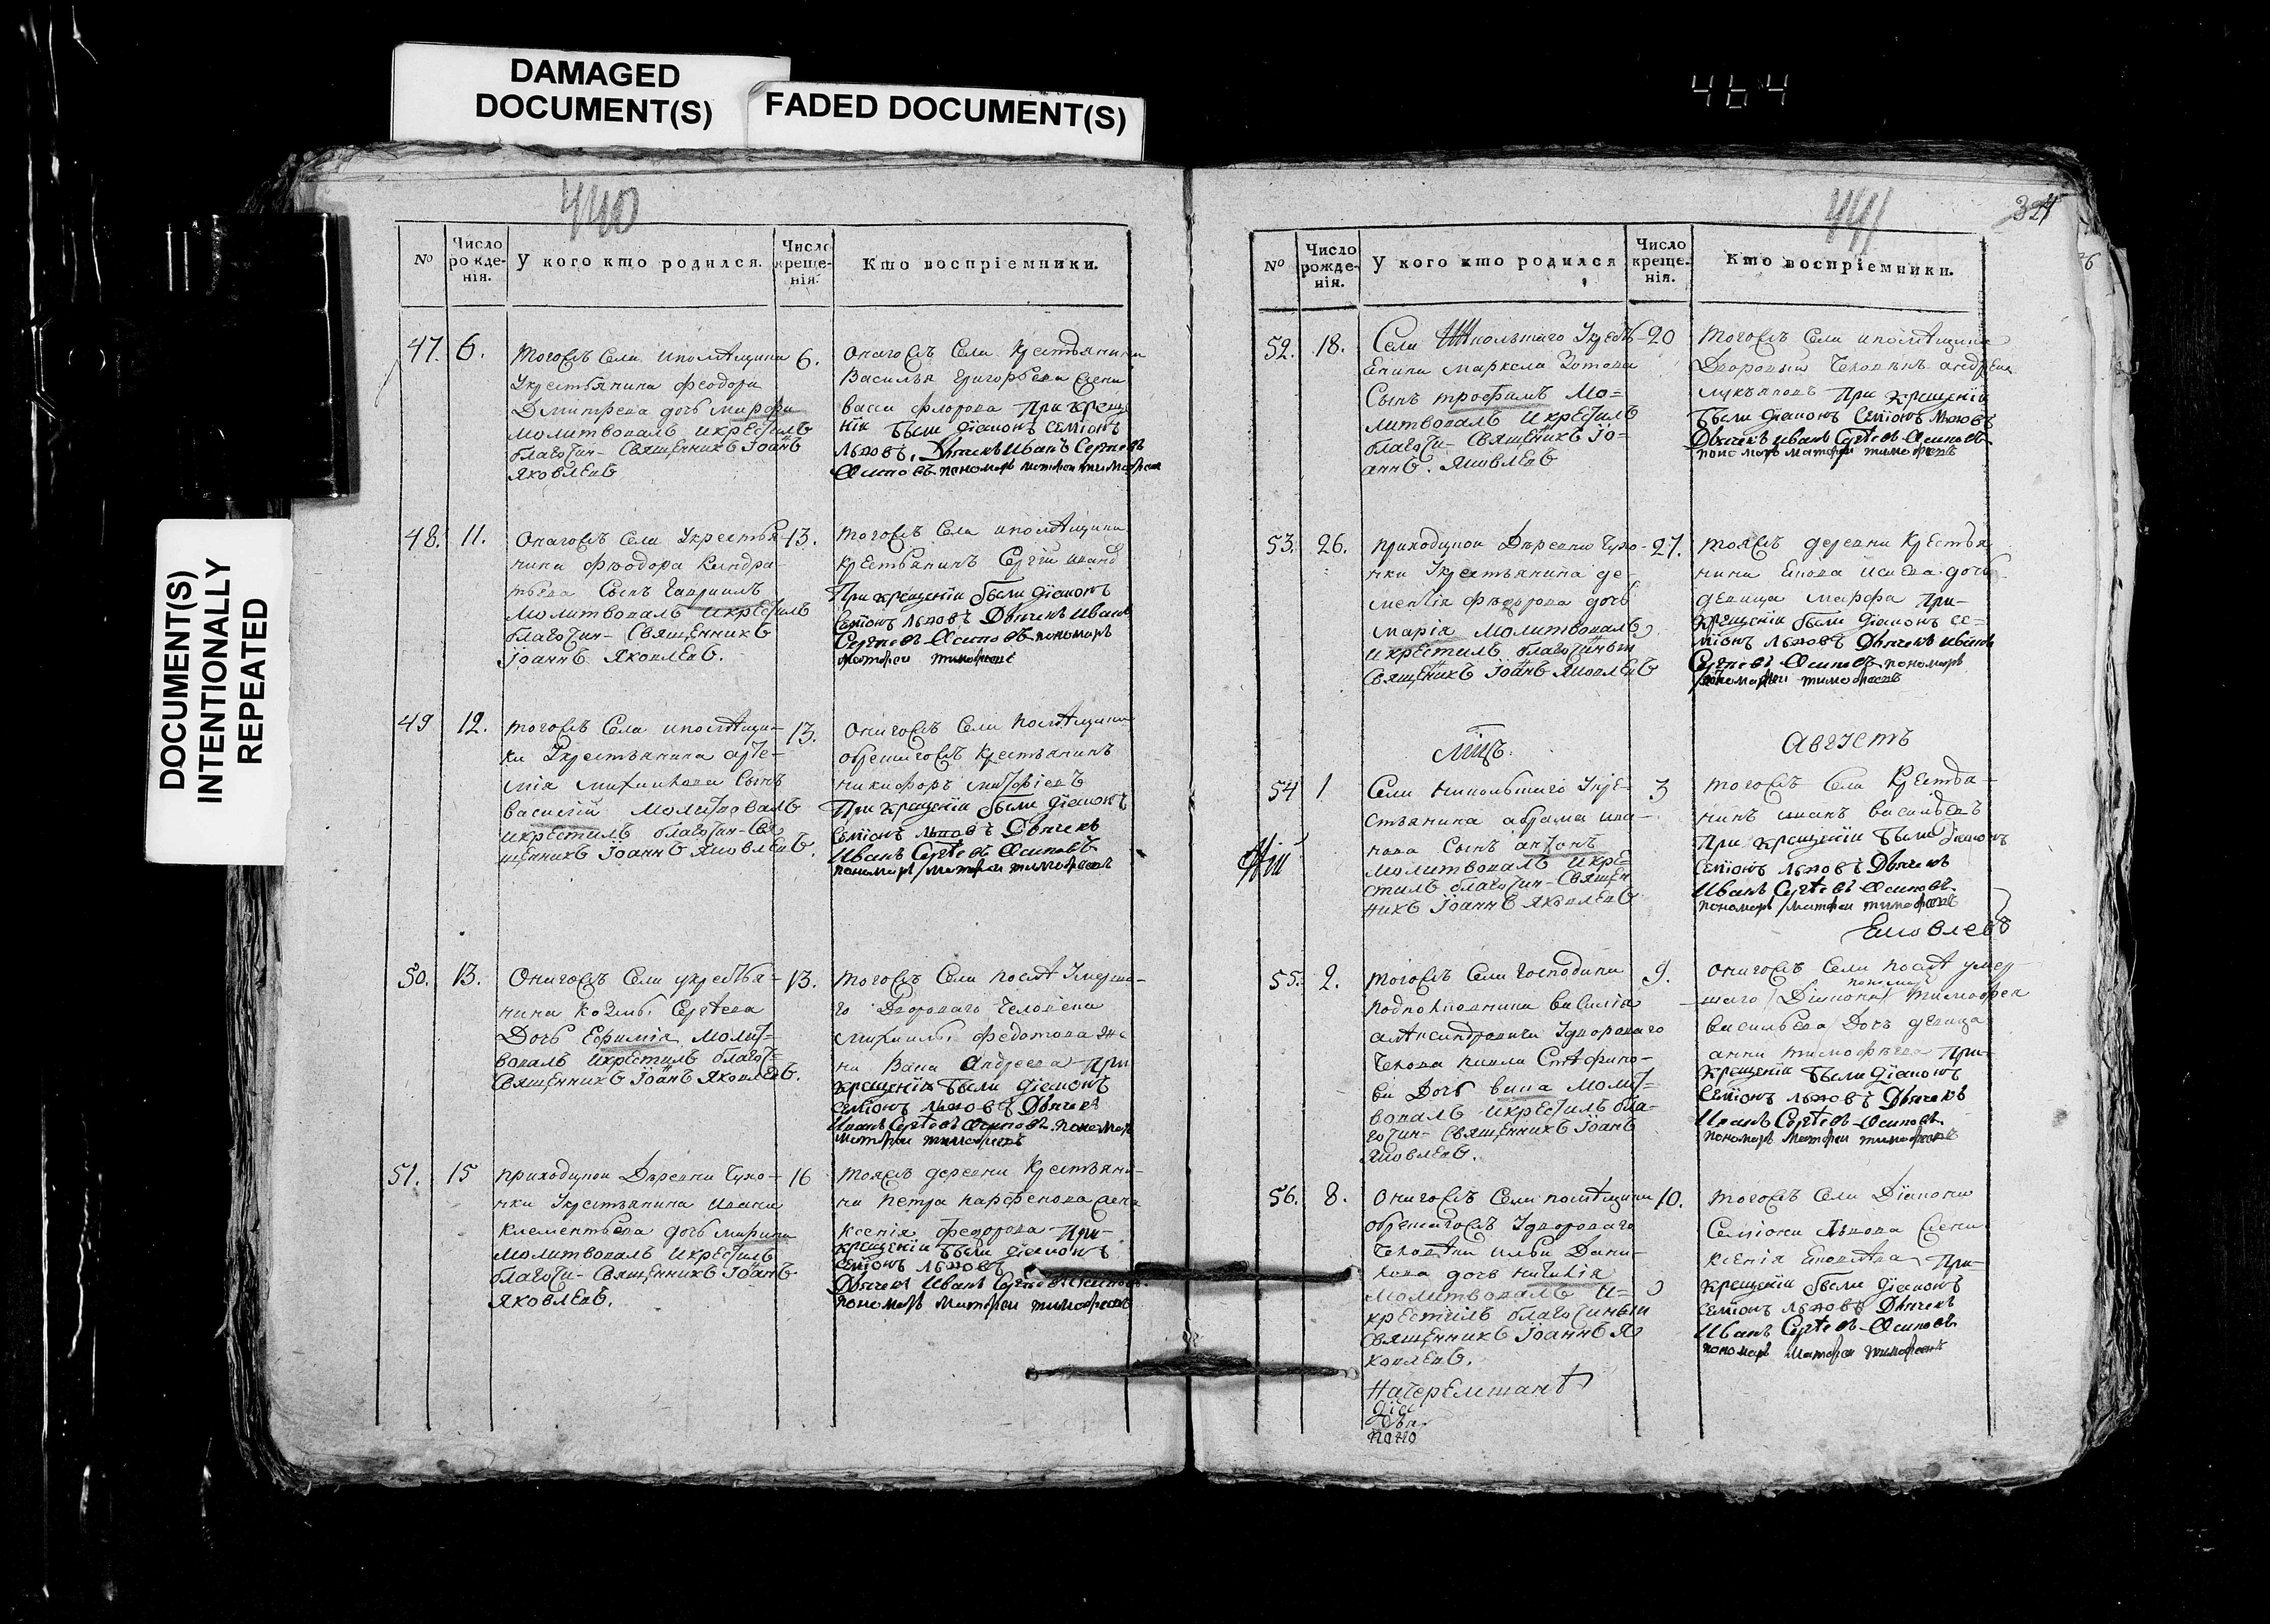 DAMAGED
DOCUMENT(S)
FADED DOCUMENT(S)
464
DOCUMENT(S)
INTENTIONALLY
REPEATED
440
№
Число рожде-нія.
У кого кто родился.
Число креще-нія.
Кто воспріемники.
47. 6.
тогожъ Села
Укрестьянина феодора
Дмитрева дочь марфа
молитвовалъ икрестилъ
благочин- Священникъ Іоаннъ
Яковлевъ
6.
онагожъ Села Крестьянина
Василья григорьева жена
васса флорова При креще
ніи были діаконъ семіонъ
львовъ. Дьячекъ Иванъ Сергѣевъ
Осиповъ пономарь матфеи тимофеев
48. 11.
Онагожъ Села Укрестья-
нина феодора Кондра-
тьева Сынъ Гавриилъ
молитвовалъ икрестилъ
благочин- Священникъ
Іоаннъ Яковлевъ.
13.
тогожъ Села
крестьянинъ Сергій
При крещеніи были діаконъ
семіонъ львовъ Дьячекъ Иванъ
Сергѣевъ Осиповъ пономарь
матфеи тимофеев
49 12.
тогожъ Села
ка Укрестьянина арте-
мія михаилова Сынъ
василій молитвовалъ
икрестилъ благочин- Свя
щенникъ Іоаннъ Яковлевъ.
13.
Онагожъ Села
крестьянинъ
никифоръ
При крещеніи были діаконъ
семіонъ львовъ Дьячекъ
Иванъ Сергѣевъ Осиповъ
пономарь матфеи тимофеевъ
50. 13.
Онагожъ Села укрестья-
нина козмы Сергѣева
Дочь Ефимія молит-
вовалъ икрестилъ благоч-
Священникъ Іоаннъ Яковлевъ.
13.
тогожъ Села послѣ умерша-
го Двороваго человека
михаилы федотова же
на Андреева при
крещеніи были діаконъ
семіонъ львовъ Дьячекъ
Иванъ Сергѣевъ Осиповъ пономарь
матфеи тимофеевъ
51. 15
приходцкои Деревни Чуко-
нки Укрестьянина ивана
клементьева дочь марина
молитвовалъ икрестилъ
благочи- Священникъ Іоаннъ
Яковлевъ.
16
тояжъ деревни Крестьяни-
на петра парфенова жена
ксенія федорова при-
крещеніи были діаконъ
семіонъ львовъ
Дьячекъ Иванъ Сергѣевъ Осиповъ
пономарь матфеи тимофеевъ
441
324
№
Число рожде-нія.
У кого кто родился
Число креще-нія.
Кто воспріемники.
52. 18.
Села Укресть-
янина маркела Зотова
Сынъ трофимъ мо=
литвовалъ икрестилъ
благочи- Священникъ Іо=
аннъ. Яковлевъ
20
тогожъ Села
Дворовыи человекъ андреи
лукьяновъ При крещеніи
были діаконъ Семіонъ львовъ
Дьячекъ иванъ Сергѣевъ Осиповъ
пономарь матфеи тимофеевъ
53. 26.
приходцкои Деревни Чуко-
нки Укрестьянина де-
ментія федорова дочь
марія молитвовалъ
икрестилъ благочинныи
Священникъ Іоаннъ Яковлевъ
27.
тояжъ деревни Крестья
нина дочь
девица марфа при-
крещеніи были діаконъ се=
міонъ львовъ Дьячекъ иванъ
Сергѣевъ Осиповъ пономарь
матфеи тимофеевъ
Мцъ.
Августъ
54 1
Села никольшаго Укре-
стьянина абрама ива-
нова Сынъ антонъ
молитвовалъ икре-
стилъ благочин- Священ
никъ Іоаннъ Яковлевъ
3
тогожъ Села Крестья-
нинъ иванъ васильевъ
При крещеніи были діаконъ
Семіонъ львовъ Дьячекъ
Иванъ Сергѣевъ Осиповъ
пономарь матфеи тимофеевъ
Яковлевъ
55. 2.
тогожъ Села господина
подполковника василія
александровича Удвороваго
Дочь молит=
вовалъ икрестилъ бла-
гочин- Священникъ Іоаннъ
Яковлевъ.
9.
онагожъ Села послѣ умер-
шаго Діакона тимофея
васильева Дочь девица
анна тимофѣева при-
крещеніи были діаконъ
Семіонъ львовъ Дьячекъ
Иванъ Сергѣевъ Осиповъ
пономарь матфеи тимофеевъ
56. 8.
Онагожъ Села
Удвороваго
человѣка ильи Дани-
лова дочь наталія
молитвовалъ и=
крестилъ благочинныи
Священникъ Іоаннъ Я
ковлевъ.
10.
тогожъ Села Діакона
Семіона львова жена
ксенія при-
крещеніи были діаконъ
семіонъ львовъ Дьячекъ
Иванъ Сергѣевъ Осиповъ
пономарь матфеи тимофеевъ